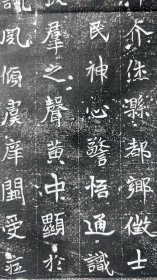 介休縣都鄉徵士
民神心警悟通識
羣之聲黃中顯於
傾虞庠受